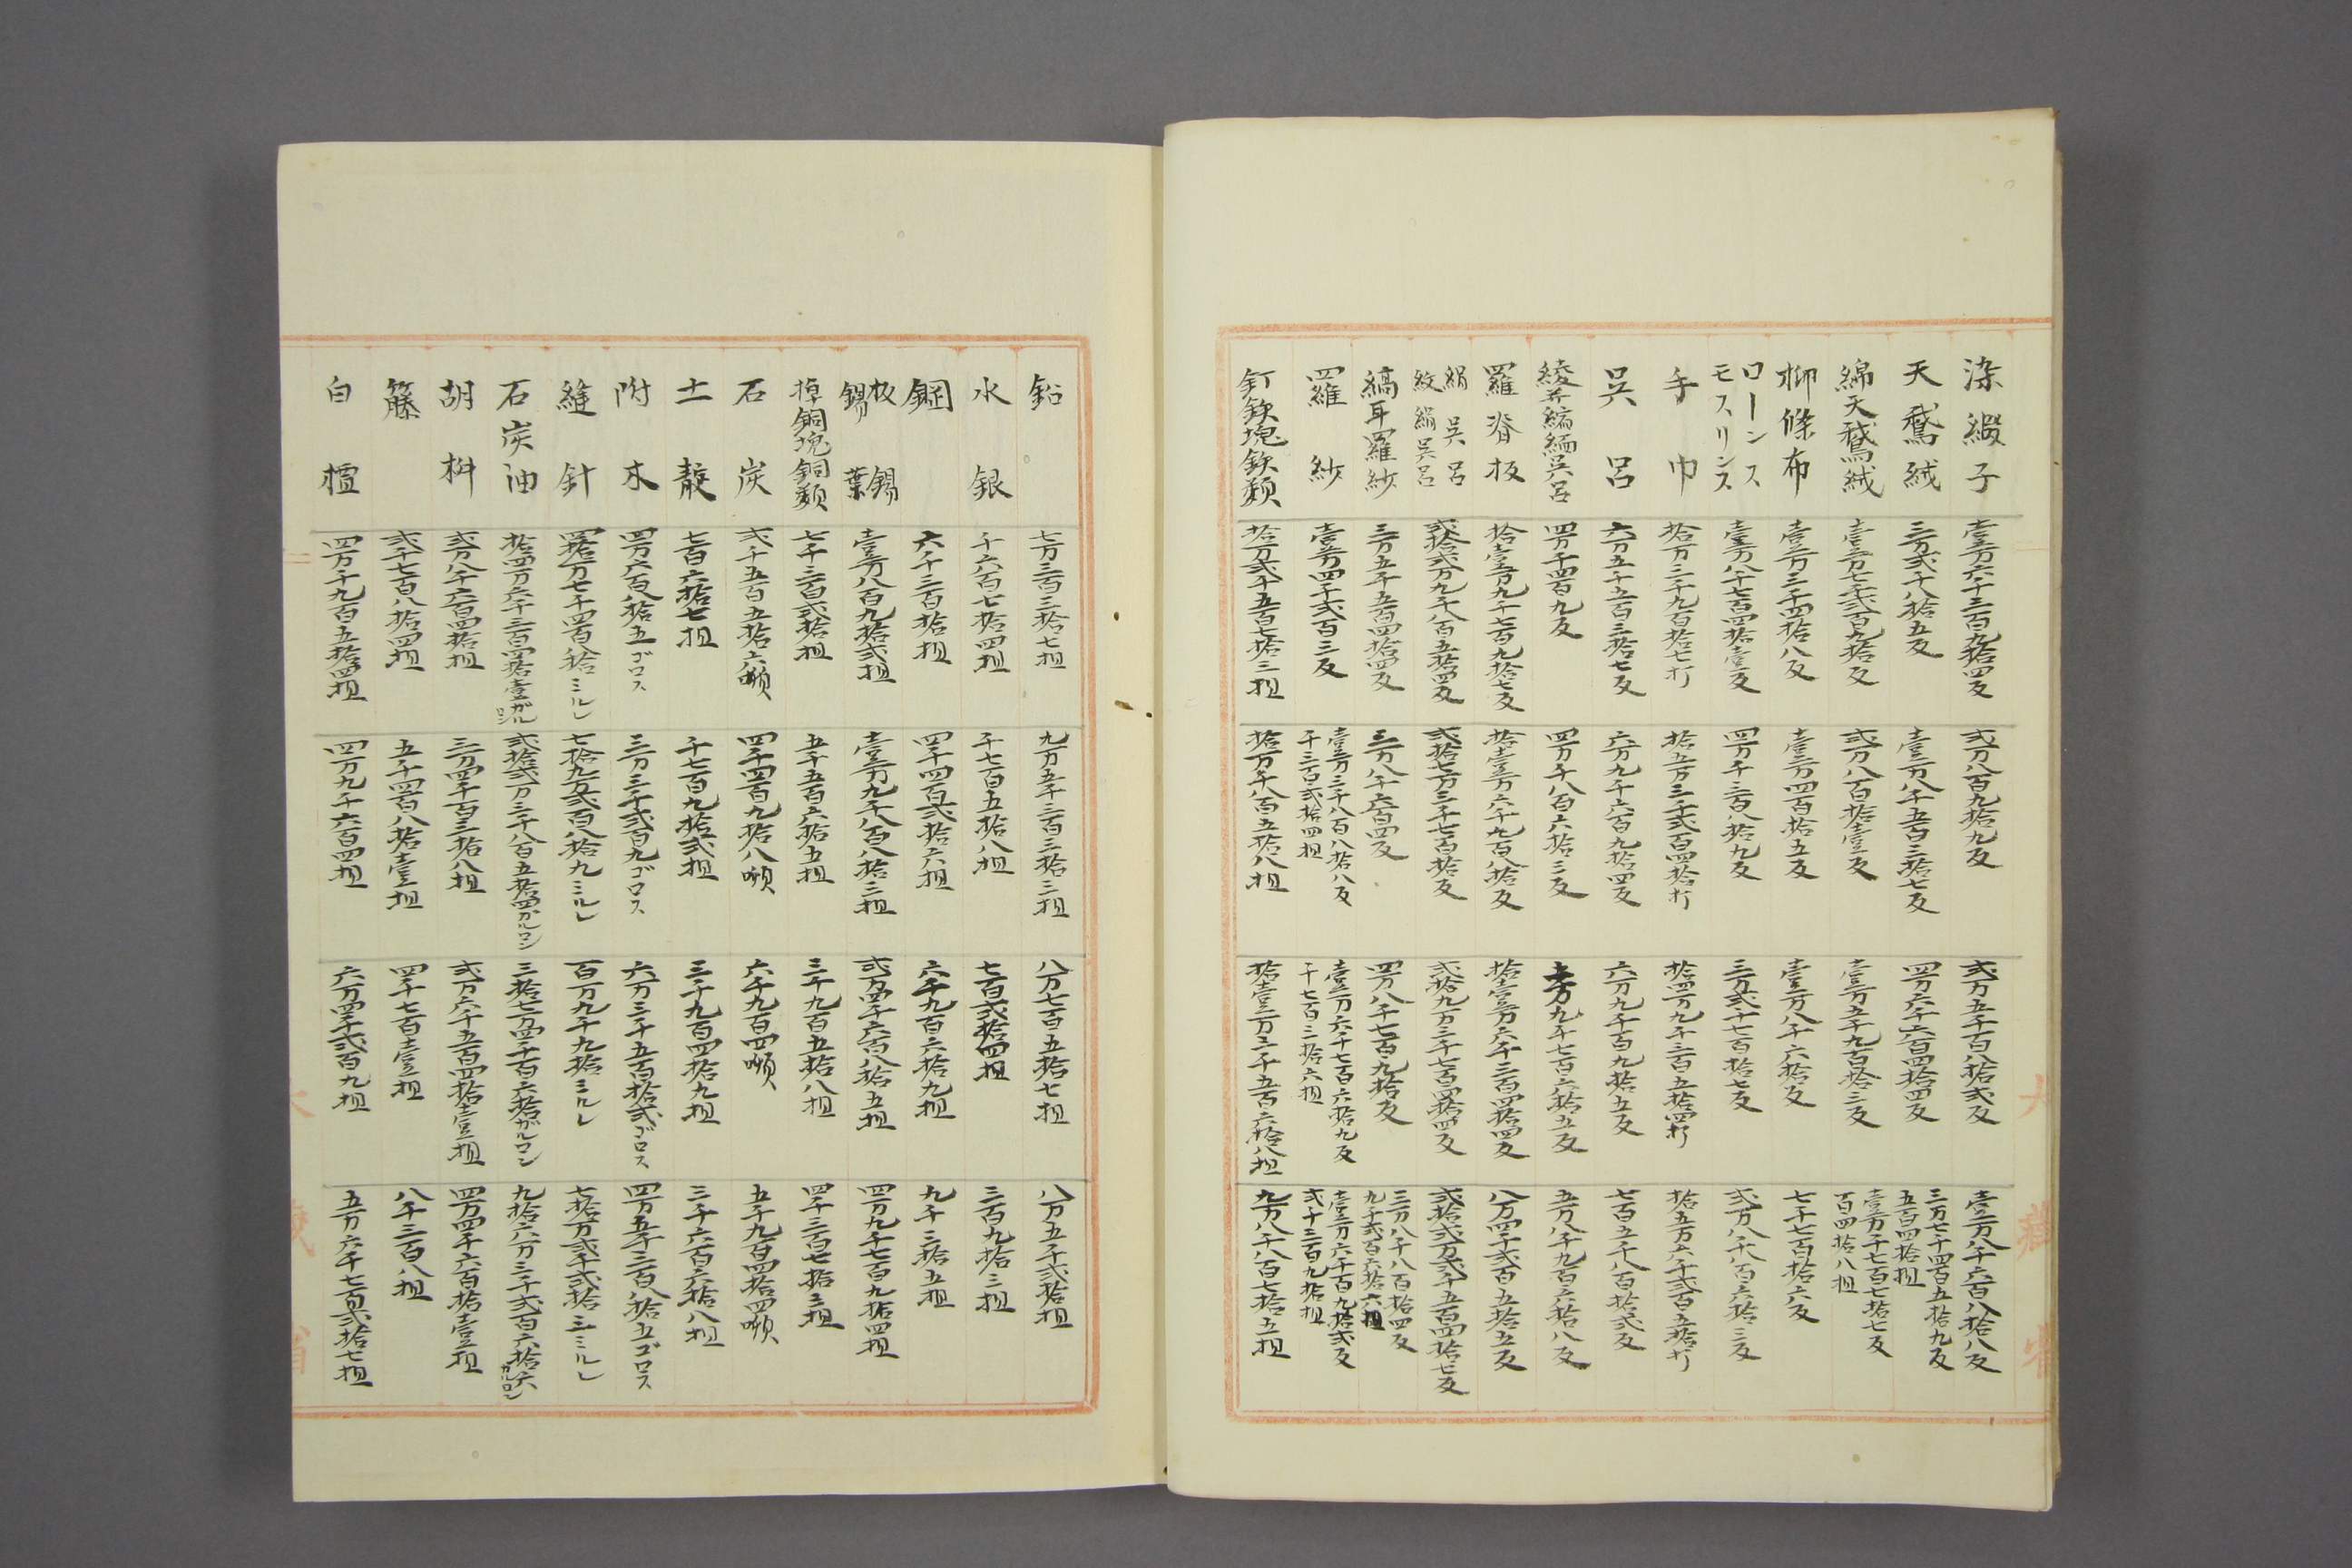 染緞子 壹万六千三百九拾四反 弐万八百九拾九反 弐万五千百八拾弐反 壹万八千六百八拾八反
天鵞絨 三万弐千八拾五反 壹万八千五百三拾七反 四万六千六百四拾四反 三万七千四百五拾九反 五百四拾担
綿天鵞絨 壹万七千弐百九拾反 弐万八百拾壹反 壹万五千九百拾三反 壹万千七百七拾七反 百四拾八担
柳條布 壹万三千四拾八反 壹万四百拾五反 壹万八千六拾反 七千七百拾六反
ローンス モスリンス 壹万八千七百四拾壹反 四万千三百八拾九反 三万弐千七百拾七反 弐万八千八百六拾三反
手巾 拾万三千九百拾七打 拾五万三千弐百四拾打 拾四万九千三百五拾四打 拾五万六千弐百五拾打
呉呂 六万五千五百三拾七反 六万九千六百九拾四反 六万九千百九拾五反 七百五千八百拾弐反
綾并縮緬呉呂 四万千四百九反 四万千八百六拾三反 七万九千七百六拾五反 五万八千九百六拾八反
羅脊板 拾壹万九千七百九拾七反 拾壹万六千九百八拾反 拾壹万六千三百四拾四反 八万四千弐百五拾五反
絹呉呂 紋絹呉呂 弐拾弐万九千八百五拾四反 弐拾七万三千七百拾反 弐拾九万三千七百四拾四反 弐拾弐万弐千五百四拾七反
縞耳羅紗 三万五千五百四拾四反 三万八千六百四反 四万八千七百九拾反 三万八千八百拾四反 九千弐百六拾六担
羅紗 壹万四千弐百三反 壹万三千八百八拾八反 千三百弐拾四担 壹万六千七百六拾九反 千七百三拾六担 壹万六千百九拾弐反 弐千三百九拾担
釘鉄塊鉄類 拾万弐千五百七拾三担 拾万千八百五拾八担 拾壹万三千五百六拾八担 九万八千八百七拾五担
鉛 七万三百三拾七担 九万五千三百三拾三担 八万七百五拾七担 八万五千弐拾担
水銀 千六百七拾四担 千七百五拾八担 七百弐拾四担 三百九拾三担
鋼 六千三百拾担 四千四百弐拾六担 六千九百六拾九担 九千三拾五担
板錫 錫葉 壹万八百九拾弐担 壹万九千八百八拾三担 弐万四千六百八拾五担 四万九千七百九拾四担
棹銅塊銅類 七千三百弐拾担 五千五百六拾五担 三千九百五拾八担 四千三百七拾三担
石炭 弐千五百五拾六噸 四千四百九拾八噸 六千九百四噸 五千九百四拾四噸
土靛 七百六拾七担 千七百九拾弐担 三千九百四拾九担 三千六百六拾八担
附木 四万六百八拾五ゴロス 三万三千弐百九ゴロス 六万三千五百拾弐ゴロス 四万五千三百八拾五ゴロス
縫針 四拾万七千四百八拾ミルレ 七拾九万弐百八拾九ミルレ 百万九千九拾ミルレ 七拾万弐千弐拾三ミルレ
石炭油 拾四万六千三百四拾壹ガルロン 弐拾弐万三千八百五拾四ガルロン 三拾七万四千百六拾ガルロン 九拾六万三千弐百六拾六ガルロン
胡椒 弐万八千六百四拾担 三万四千百三拾八担 弐万六千五百四拾壹担 四万四千六百拾壹担
籐 弐千七百八拾四担 五千四百八拾壹担 四千七百壹担 八千三百八担
白檀 四万千九百五拾四担 四万九千六百四担 六万四千弐百九担 五万六千七百弐拾七担
大藏省